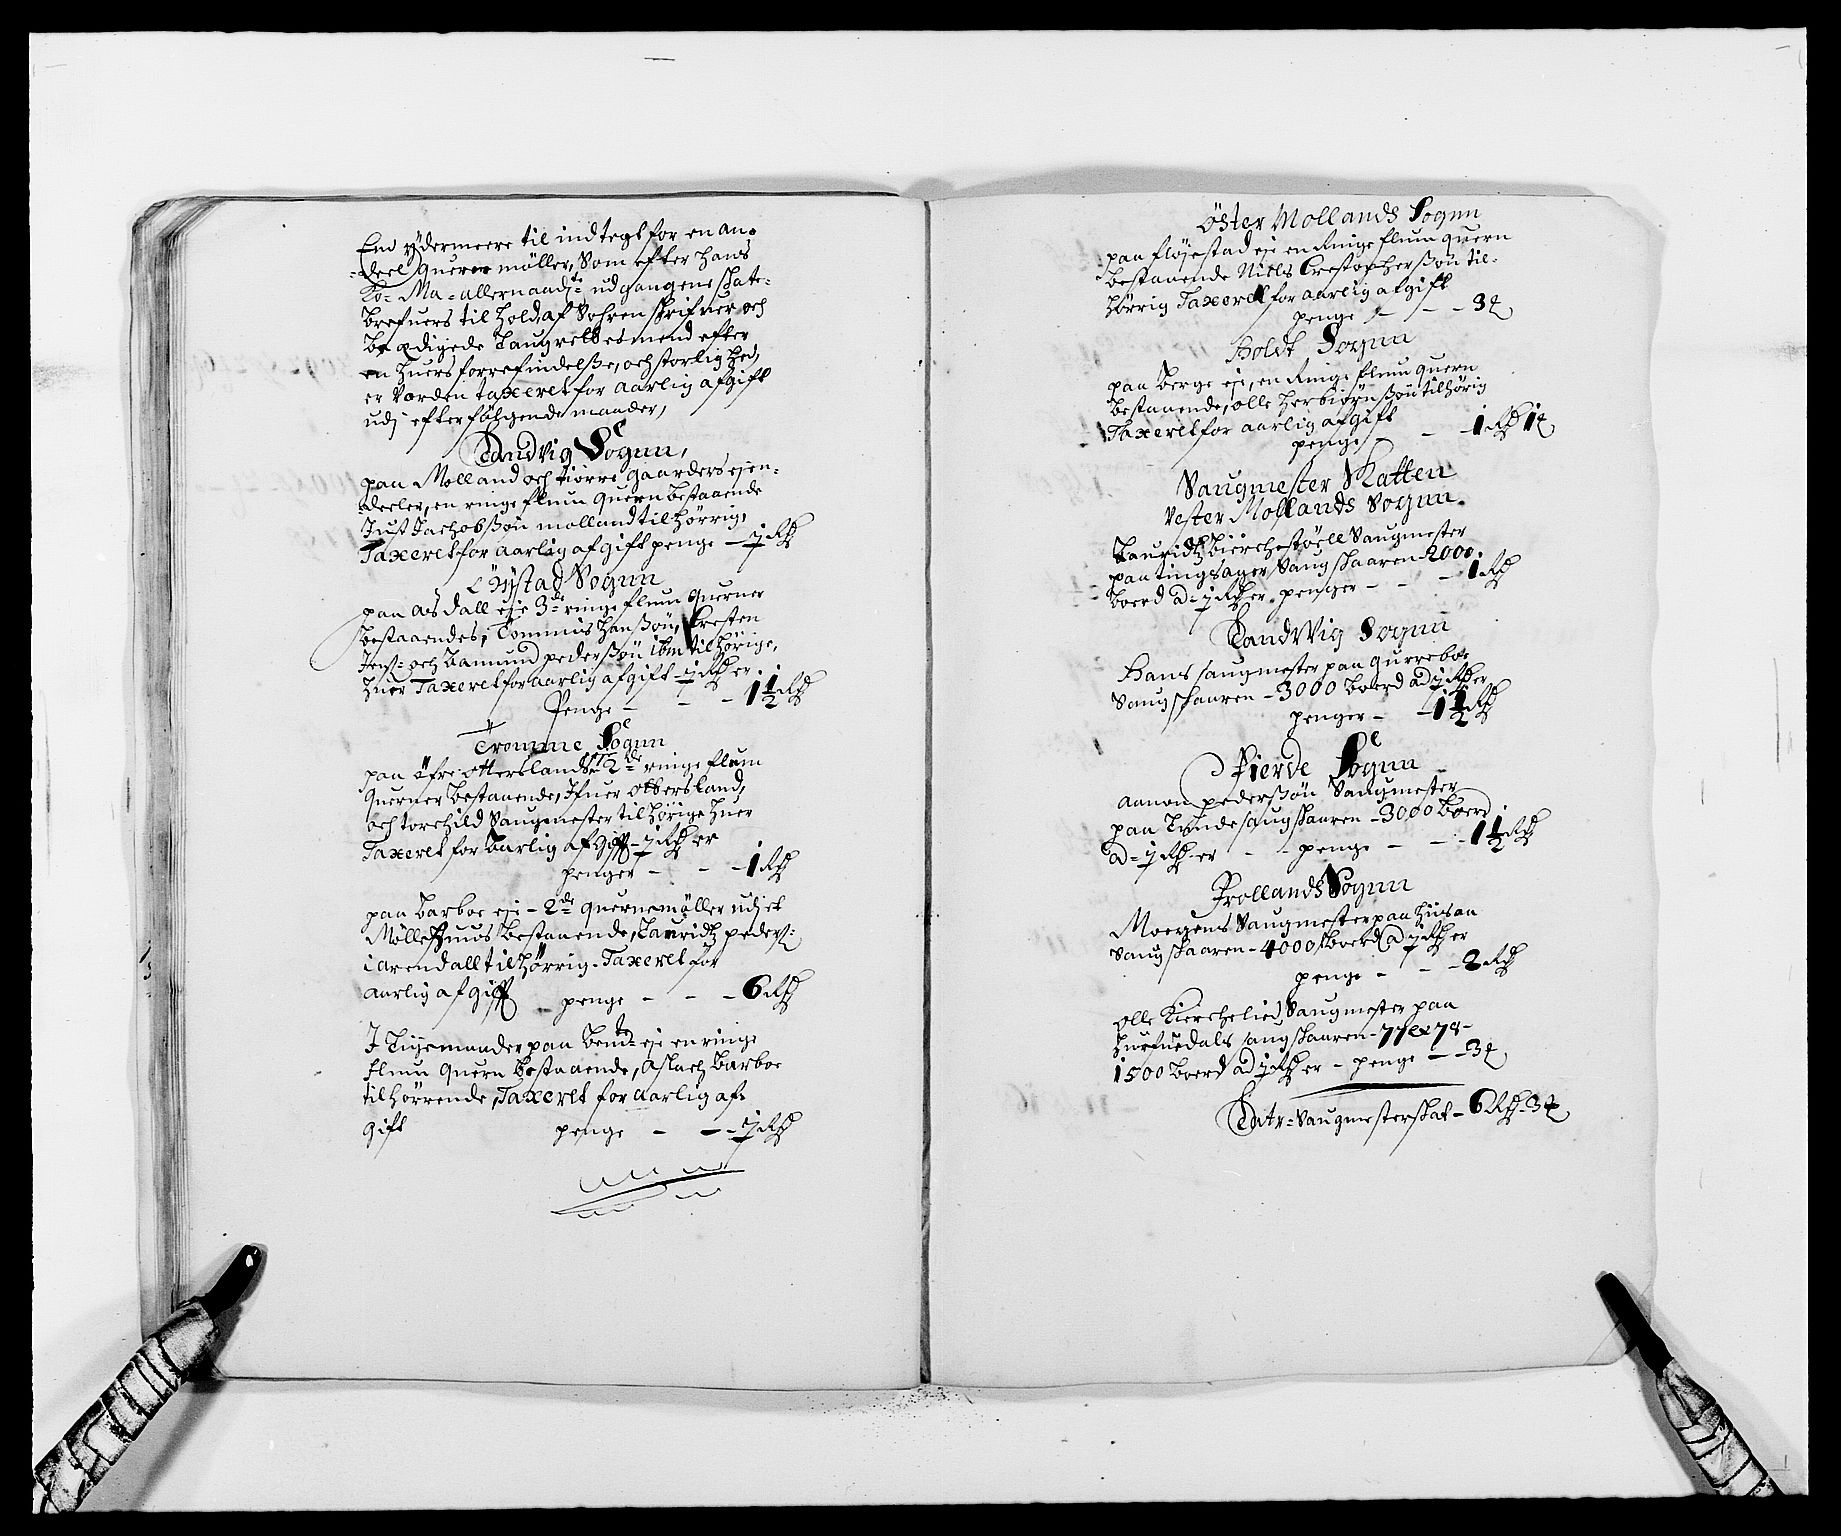 End ydermeere til indtegt for en an-
deel querne möller, Som efter hans
Ko: Ma: allernaadste udgangene skate-
brefuers til hold, af Sohren skrifuer och
be ædigede Laugrettes mend efter
en huers forrefindelße, och storlighed,
er vorden taxeret for aarlig afgift
udj efterfölgende maader,
Landvig Sognn,
paa Molland och tiörre gaarders ejen-
deeler, en ringe flum quern bestaaende
Just Jachobßøn molland tilhörrig,
Taxeret for aarlig afgift penge - ½ Rd
Öystad Sognn
paa Assdall eje 3de ringe flum querner
bestaaendes, Tommis Hanßøn, Cresten
Jens: och Bamund pederßøn ibm tilhörige,
huer Taxeret for aarlig afgift - ½ Rd er
Penge - - - 1½ Rd
Tromme Sognn
paa öfre otterslands 2de ringe flum
querner bestaaende, Ifuer ottersland,
och torchild Saugmester tilhörige huer
Taxeret for Aarlig afgift - ½ Rd er
penger - - - 1 Rd
paa Barboe eje - 2de querne möller udj et
Mölle huus bestaaende, Lauridtz peders:
i arendall tilhörrig - Taxeret for
aarlig afgift penge - - - 6 Rd
I Tuyemander paa Bende eje en ringe
flum quern bestaaende, Aslach Barboe
tilhörrende, Taxeret for aarlig af-
gift penge - - - ½ Rd
Öster Mollands Sognn
paa fløjestad eje en Ringe flum quern
bestaaende Niels Crestopherßøn til-
hörrig Taxeret for aarlig afgift
penge - - - 3 ort
Holdt Sognn
paa Berge eje, en Ringe flum quern
bestaaende, olle Herbiörnßøn tilhörig
Taxeret for aarlig afgift
penge - - - 1 Rd 1 ort
Saugmester Skatten
Vester Mollands Sognn.
Lauridtz Bierchestöell Saugmester
paa tingsager, Saug skaaren 2000
boerd a: ½ Rd er. penger - - - 1 Rd
Landvig Sognn
Hans saugmester paa gurreboe
Saug skaaren - 3000 boerd ad ½ Rd er
penger - - 1½ Rd
Fierde Sognn
Aanon pederßøn Saugmester
paa Lunde saug skaaren - 3000 boerd
a - ½ Rd er - - penge - - - 1½ Rd
Frollands Sognn
Moegens Saugmester paa Huusaa
Saug skaaren - 4000 boerd a ½ Rd er
penge - - - 2 Rd
olle Kierchelied, Saugmester paa
hurfuedals saug skaaren - 77 er 78 -
1500 boerd ad ½ Rd er - penge - - 3 ort
Latr: Saugmesterskat - 6 Rd - 3 ort